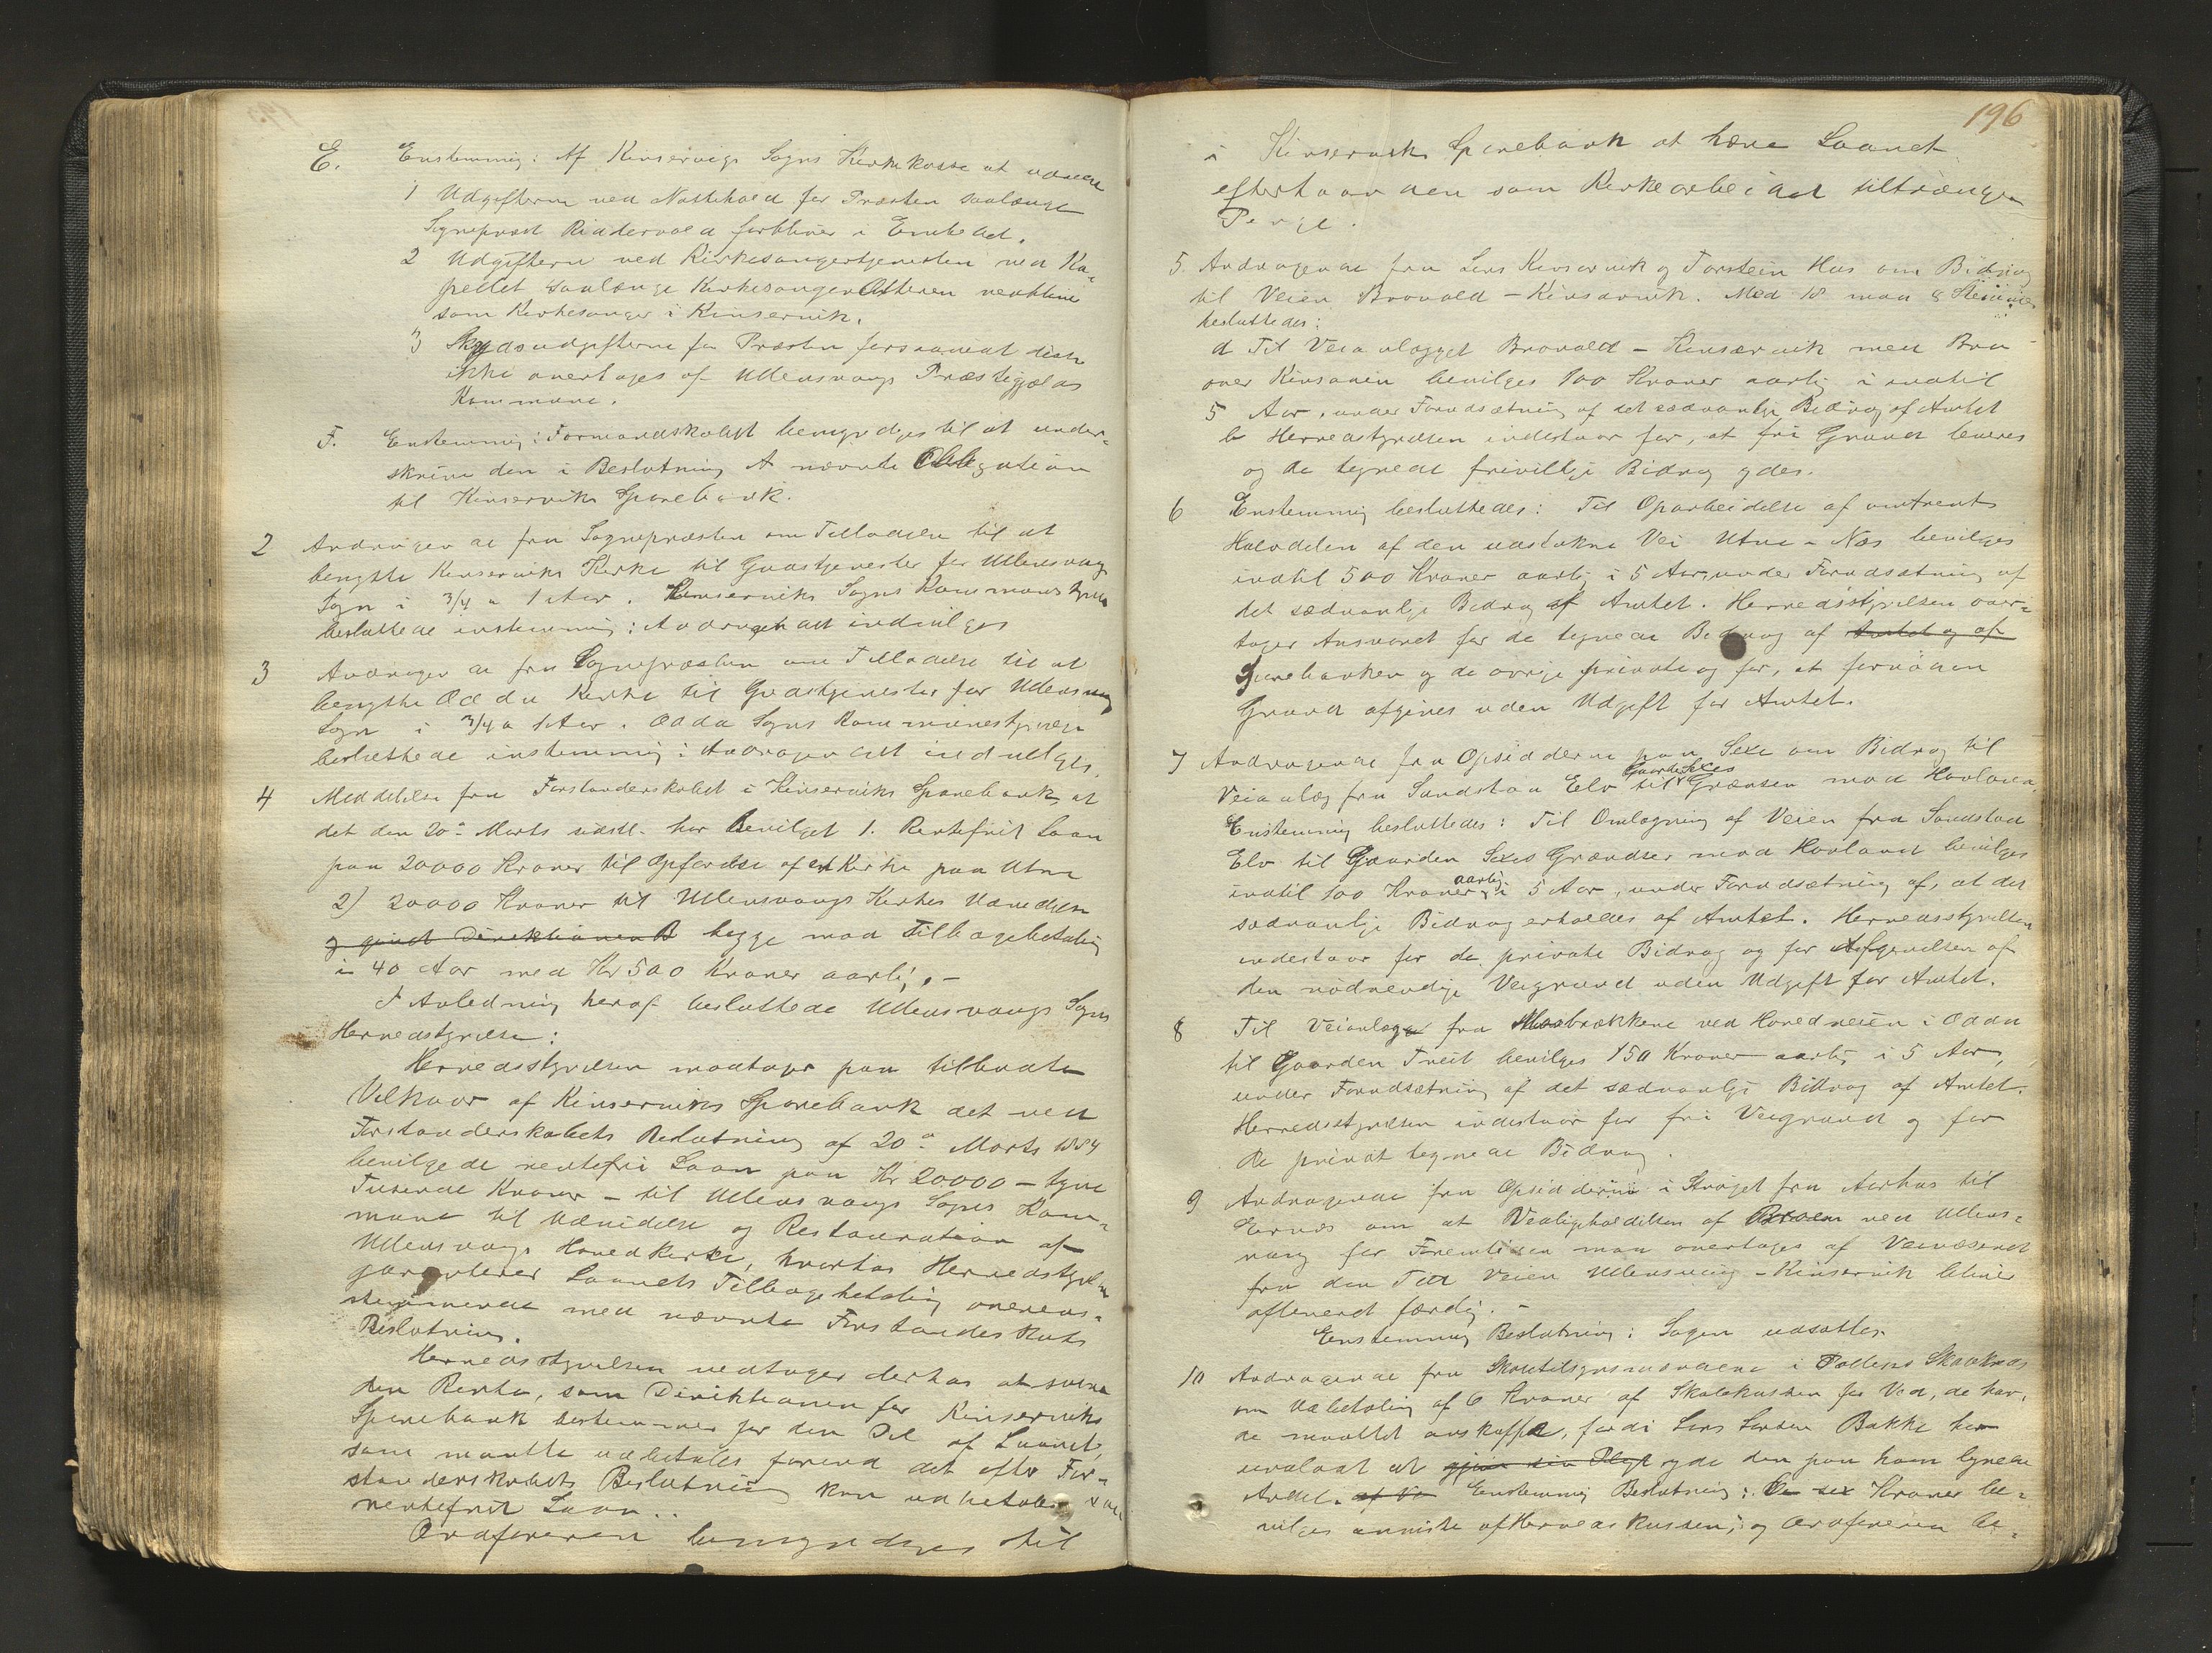 E. Enstemmig: Af Kinservigs Sogns Kirkekasse at udrede
1 Udgifterne ved Nattehold for Præsten saalænge
Sognepræst Riddervold forbliver i Embedet.
2 Udgifterne ved Kirkesangertjenesten ved Ka-
pellet saalænge Kirkesanger Olsen vedbliver
som Kirkesanger i Kinservik.
3 Skydsudgifterne for Præsten forsaavidt disse
ikke overtages af Ullensvangs Præstegjælds
Kommune.
F. Enstemmig: Formandskabet bemyndiges til at under-
skrive den i Beslutning A nævnte Obligation
til Kinserviks Sparebank.
2 Andragende fra Sognepræsten om Tilladelse til at
benytte Kinserviks Kirke til Gudstjenester for Ullensvangs
Sogn i 3/4 a 1 Aar. Kinserviks Sogns Kommunestyrelse
besluttede enstemmig: Andragendet indvilges
3 Andragende fra Sognepræsten om Tilladelse til at
benytte Odda Kirke til Gudstjenester for Ullensvang
Sogn i 3/4 a 1 Aar. Odda Sogns Kommunestyrelse
besluttede enstemmig: Andragendet indvilges.
4 Meddelelse fra Forstanderskabet i Kinserviks Sparebank, at
det den 20de Marts sidstl. har bevilget 1. Rentefrit Laan
paa 20000 Kroner til Opførelse af en Kirke paa Utne
2) 20000 Kroner til Ullensvangs Kirkes Udvidelse
og givet Direktionen B begge mod Tilbagebetaling
i 40 Aar med Kr 500 Kroner aarlig. -
I Anledning heraf besluttede Ullensvangs Sogns
Herredstyrelse:
Herredsstyrelsen modtager paa tilbudte
Vilkaar af Kinserviks Sparebank det ved
Forstanderskabets Beslutning af 20de Marts 1884
bevilgede rentefri Laan paa Kr 20000 - tyve
Tusende Kroner - til Ullensvangs Sogns Kom-
mune til Udvidelse og Restauration af
Ullensvangs Hovedkirke, hvorhos Herredstyrelsen
garanterer Laanets Tilbagebetaling overens-
stemmende med nævnte Forstanderskabs
Beslutning.
Herredsstyrelsen vedtager derhos at svare
den Rente, som Direktionen for Kinserviks
Sparebank bestemmer for den Del af Laanet,
som maatte udbetales forend det efter For-
standerskabets Beslutning kan udbetales som
rentefrit Laan..
Ordføreren bemyndiges til
196
i Kinserviks Sparebank at hæve Laanet
efterhaanden som Kirkearbeidet tiltrænger
Penge.
5. Andragende fra Lars Kinservik og Torstein Hus om Bidrag
til Veien Brovold - Kinservik. Med 18 mod 8 Stemmer
besluttedes:
a Til Veianlægget Brovold - Kinservik med Bro
over Kinsoelven bevilges 100 Kroner aarlig i indtil
5 Aar, under Forudsætning af det sædvanlige Bidrag af Amtet
b Herredstyrelsen indestaar for, at fri Grund leveres
og de tegnede frivillige Bidrag ydes.
6 Enstemmig besluttedes: Til Oparbeidelse af omtrent
Halvdelen af den udstukne Vei Utne - Næs bevilges
indtil 500 Kroner aarlig i 5 Aar, under Forudsætning af
det sædvanlige Bidrag af Amtet. Herredsstyrelsen over-
tager Ansvaret for de tegnede Bidrag af Amtet og af
Sparebanken og de øvrige private og for, at fornøden
Grund afgives uden Udgift for Amtet.
7 Andragende fra Opsidderne paa Sexe om Bidrag til
Veianlæg fra Sandstøa Elv til Gaarden Sexes Grænsen mod Hovland,
Enstemmig besluttedes: Til Omlægning af Veien fra Sandstøa
Elv til Gaarden Sexes Grændser mod Hovland bevilges
indtil 100 Kroner aarlig i 5 Aar, under Forudsætning af, at det
sædvanlige Bidrag erholdes af Amtet. Herredsstyrelsen
indestaar for de private Bidrag og for Afgivelsen af
den nødvendige Veigrund uden Udgift for Amtet.
8 Til Veianlæg fra Mosbrækkene ved Hovedveien i Odda
til Gaarden Freit bevilges 150 Kroner aarlig i 5 Aar,
under Forudsætning af det sædvanlige Bidrag af Amtet.
Herredsstyrelsen indestaar for fri Veigrund og for
de privat tegnede Bidrag.
9 Andragende fra Opsidderne i Strøget fra Aarhus til
Eernæs om at Vedligeholdelsen af Broen ved Ullens-
vang for Fremtiden maa overtages af Veivæsenet
fra den Tid Veien Ullensvang - Kinservik bliver
afleveret færdig. -
Enstemmig Beslutning: Sagen udsættes
10 Andragende fra Skoletilsynsmændene i Skolekreds
om Udbetaling af 6 Kroner af Skolekassen for Ved, de har
de maattet anskaffe, fordi Lars Larsen Bakke har
undladt at gjøre sin Pligt yde den paa ham lignede
Andel. af Ve Enstemmig Beslutning: De sex Kroner be-
vilges anviste af Herredskassen, og Ordføreren be-